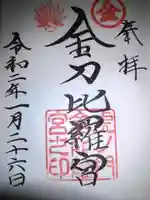 奉拝
金
金刀比羅宮
宮之印
令和二年一月二十六日